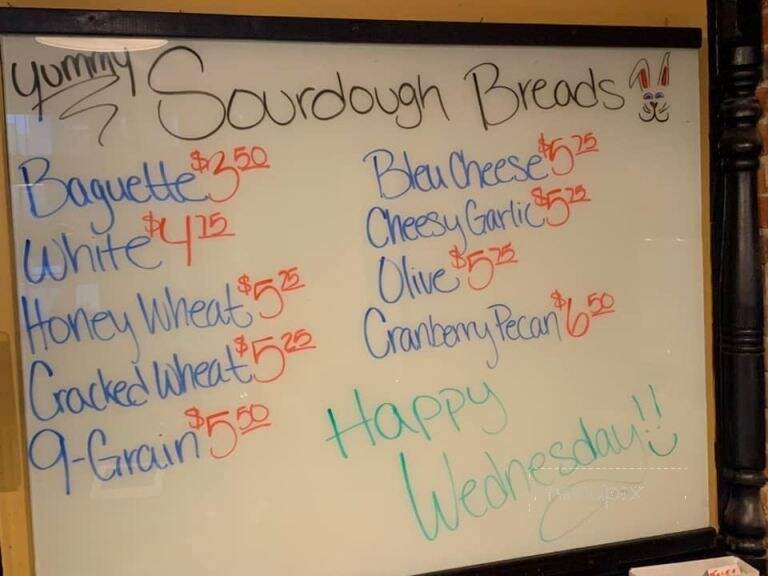 yummy Sourdough Breads
Baguette $3.50
White $4.75
Honey Wheat $5.25
Cracked Wheat $5.25
9-Grain $5.50
Bleu Cheese $5.75
Cheesy Garlic $5.75
Olive $5.75
Cranberry Pecan $6.50
Happy
Wednesday!!